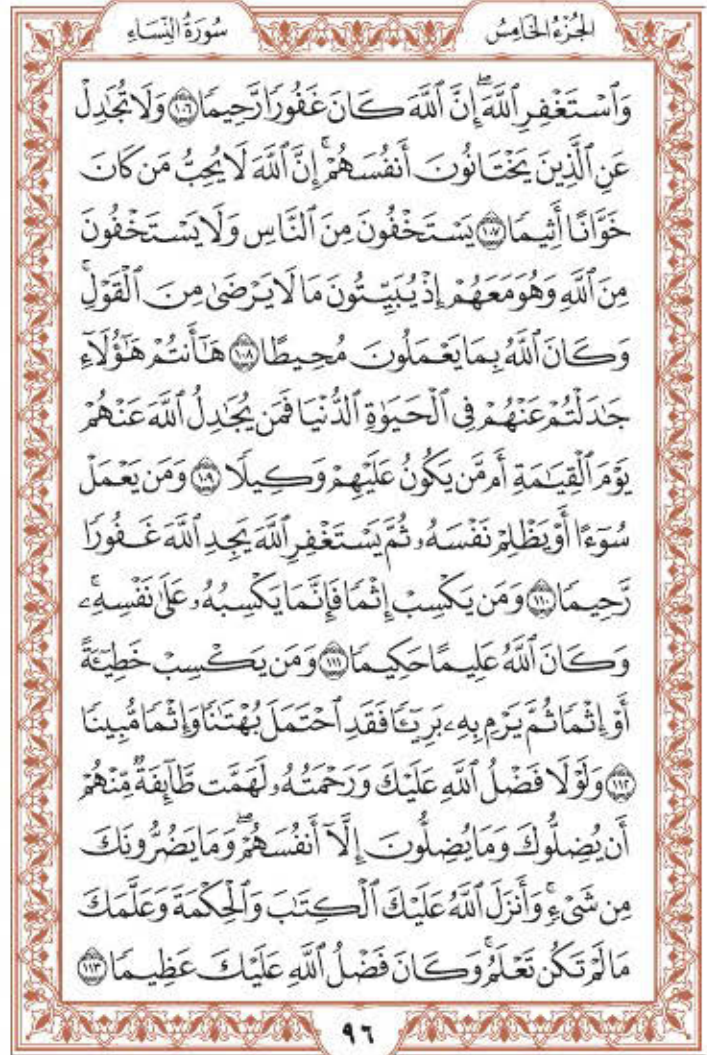 الجُزْءُ الخَامِسُ سُورَةُ النِّسَاءِ
وَٱسۡتَغۡفِرِ ٱللَّهَۖ إِنَّ ٱللَّهَ كَانَ غَفُورٗا رَّحِيمٗا ١٠٦ وَلَا تُجَٰدِلۡ
عَنِ ٱلَّذِينَ يَخۡتَانُونَ أَنفُسَهُمۡۚ إِنَّ ٱللَّهَ لَا يُحِبُّ مَن كَانَ
خَوَّانًا أَثِيمٗا ١٠٧ يَسۡتَخۡفُونَ مِنَ ٱلنَّاسِ وَلَا يَسۡتَخۡفُونَ
مِنَ ٱللَّهِ وَهُوَ مَعَهُمۡ إِذۡ يُبَيِّتُونَ مَا لَا يَرۡضَىٰ مِنَ ٱلۡقَوۡلِۚ
وَكَانَ ٱللَّهُ بِمَا يَعۡمَلُونَ مُحِيطًا ١٠٨ هَٰٓأَنتُمۡ هَٰٓؤُلَآءِ
جَٰدَلۡتُمۡ عَنۡهُمۡ فِي ٱلۡحَيَوٰةِ ٱلدُّنۡيَا فَمَن يُجَٰدِلُ ٱللَّهَ عَنۡهُمۡ
يَوۡمَ ٱلۡقِيَٰمَةِ أَم مَّن يَكُونُ عَلَيۡهِمۡ وَكِيلٗا ١٠٩ وَمَن يَعۡمَلۡ
سُوٓءًا أَوۡ يَظۡلِمۡ نَفۡسَهُۥ ثُمَّ يَسۡتَغۡفِرِ ٱللَّهَ يَجِدِ ٱللَّهَ غَفُورٗا
رَّحِيمٗا ١١٠ وَمَن يَكۡسِبۡ إِثۡمٗا فَإِنَّمَا يَكۡسِبُهُۥ عَلَىٰ نَفۡسِهِۦۚ
وَكَانَ ٱللَّهُ عَلِيمًا حَكِيمٗا ١١١ وَمَن يَكۡسِبۡ خَطِيٓـَٔةً
أَوۡ إِثۡمٗا ثُمَّ يَرۡمِ بِهِۦ بَرِيٓـٔٗا فَقَدِ ٱحۡتَمَلَ بُهۡتَٰنٗا وَإِثۡمٗا مُّبِينٗا
١١٢ وَلَوۡلَا فَضۡلُ ٱللَّهِ عَلَيۡكَ وَرَحۡمَتُهُۥ لَهَمَّت طَّآئِفَةٞ مِّنۡهُمۡ
أَن يُضِلُّوكَ وَمَا يُضِلُّونَ إِلَّآ أَنفُسَهُمۡۖ وَمَا يَضُرُّونَكَ
مِن شَيۡءٖۚ وَأَنزَلَ ٱللَّهُ عَلَيۡكَ ٱلۡكِتَٰبَ وَٱلۡحِكۡمَةَ وَعَلَّمَكَ
مَا لَمۡ تَكُن تَعۡلَمُۚ وَكَانَ فَضۡلُ ٱللَّهِ عَلَيۡكَ عَظِيمٗا ١١٣
٩٦